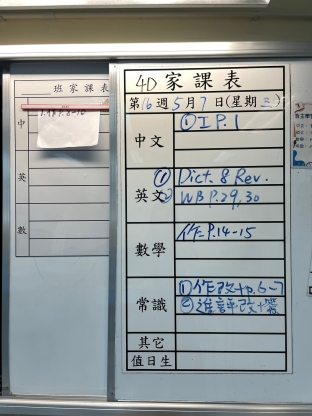 班家課表
中
英
數
4D 家課表
第16週5月7日(星期三)
中文
① I P.1
英文
① Dict. 8 Rev.
② WB P.29, 30
數學
作=P.14-15
常識
① 作改+p.6-7
其它
值日生